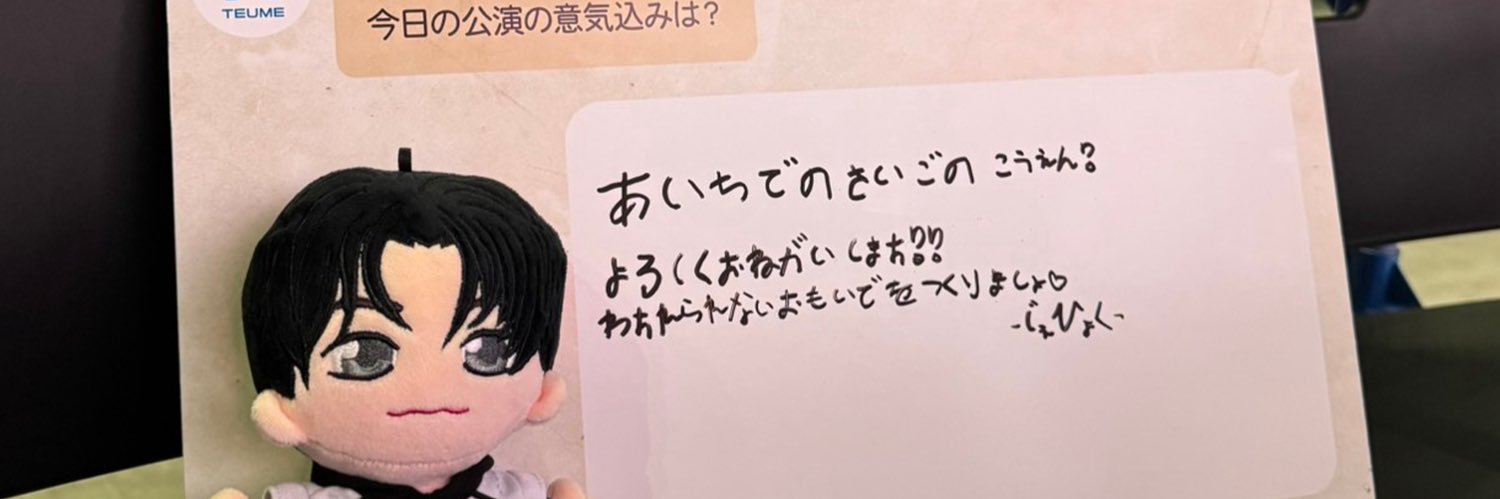 TEUME
今日の公演の意気込みは?
あいちでのさいごの こうえん!!
よろしくおねがいします!!
わすれられないおもいでをつくりましょ♡
-じぇひょく-